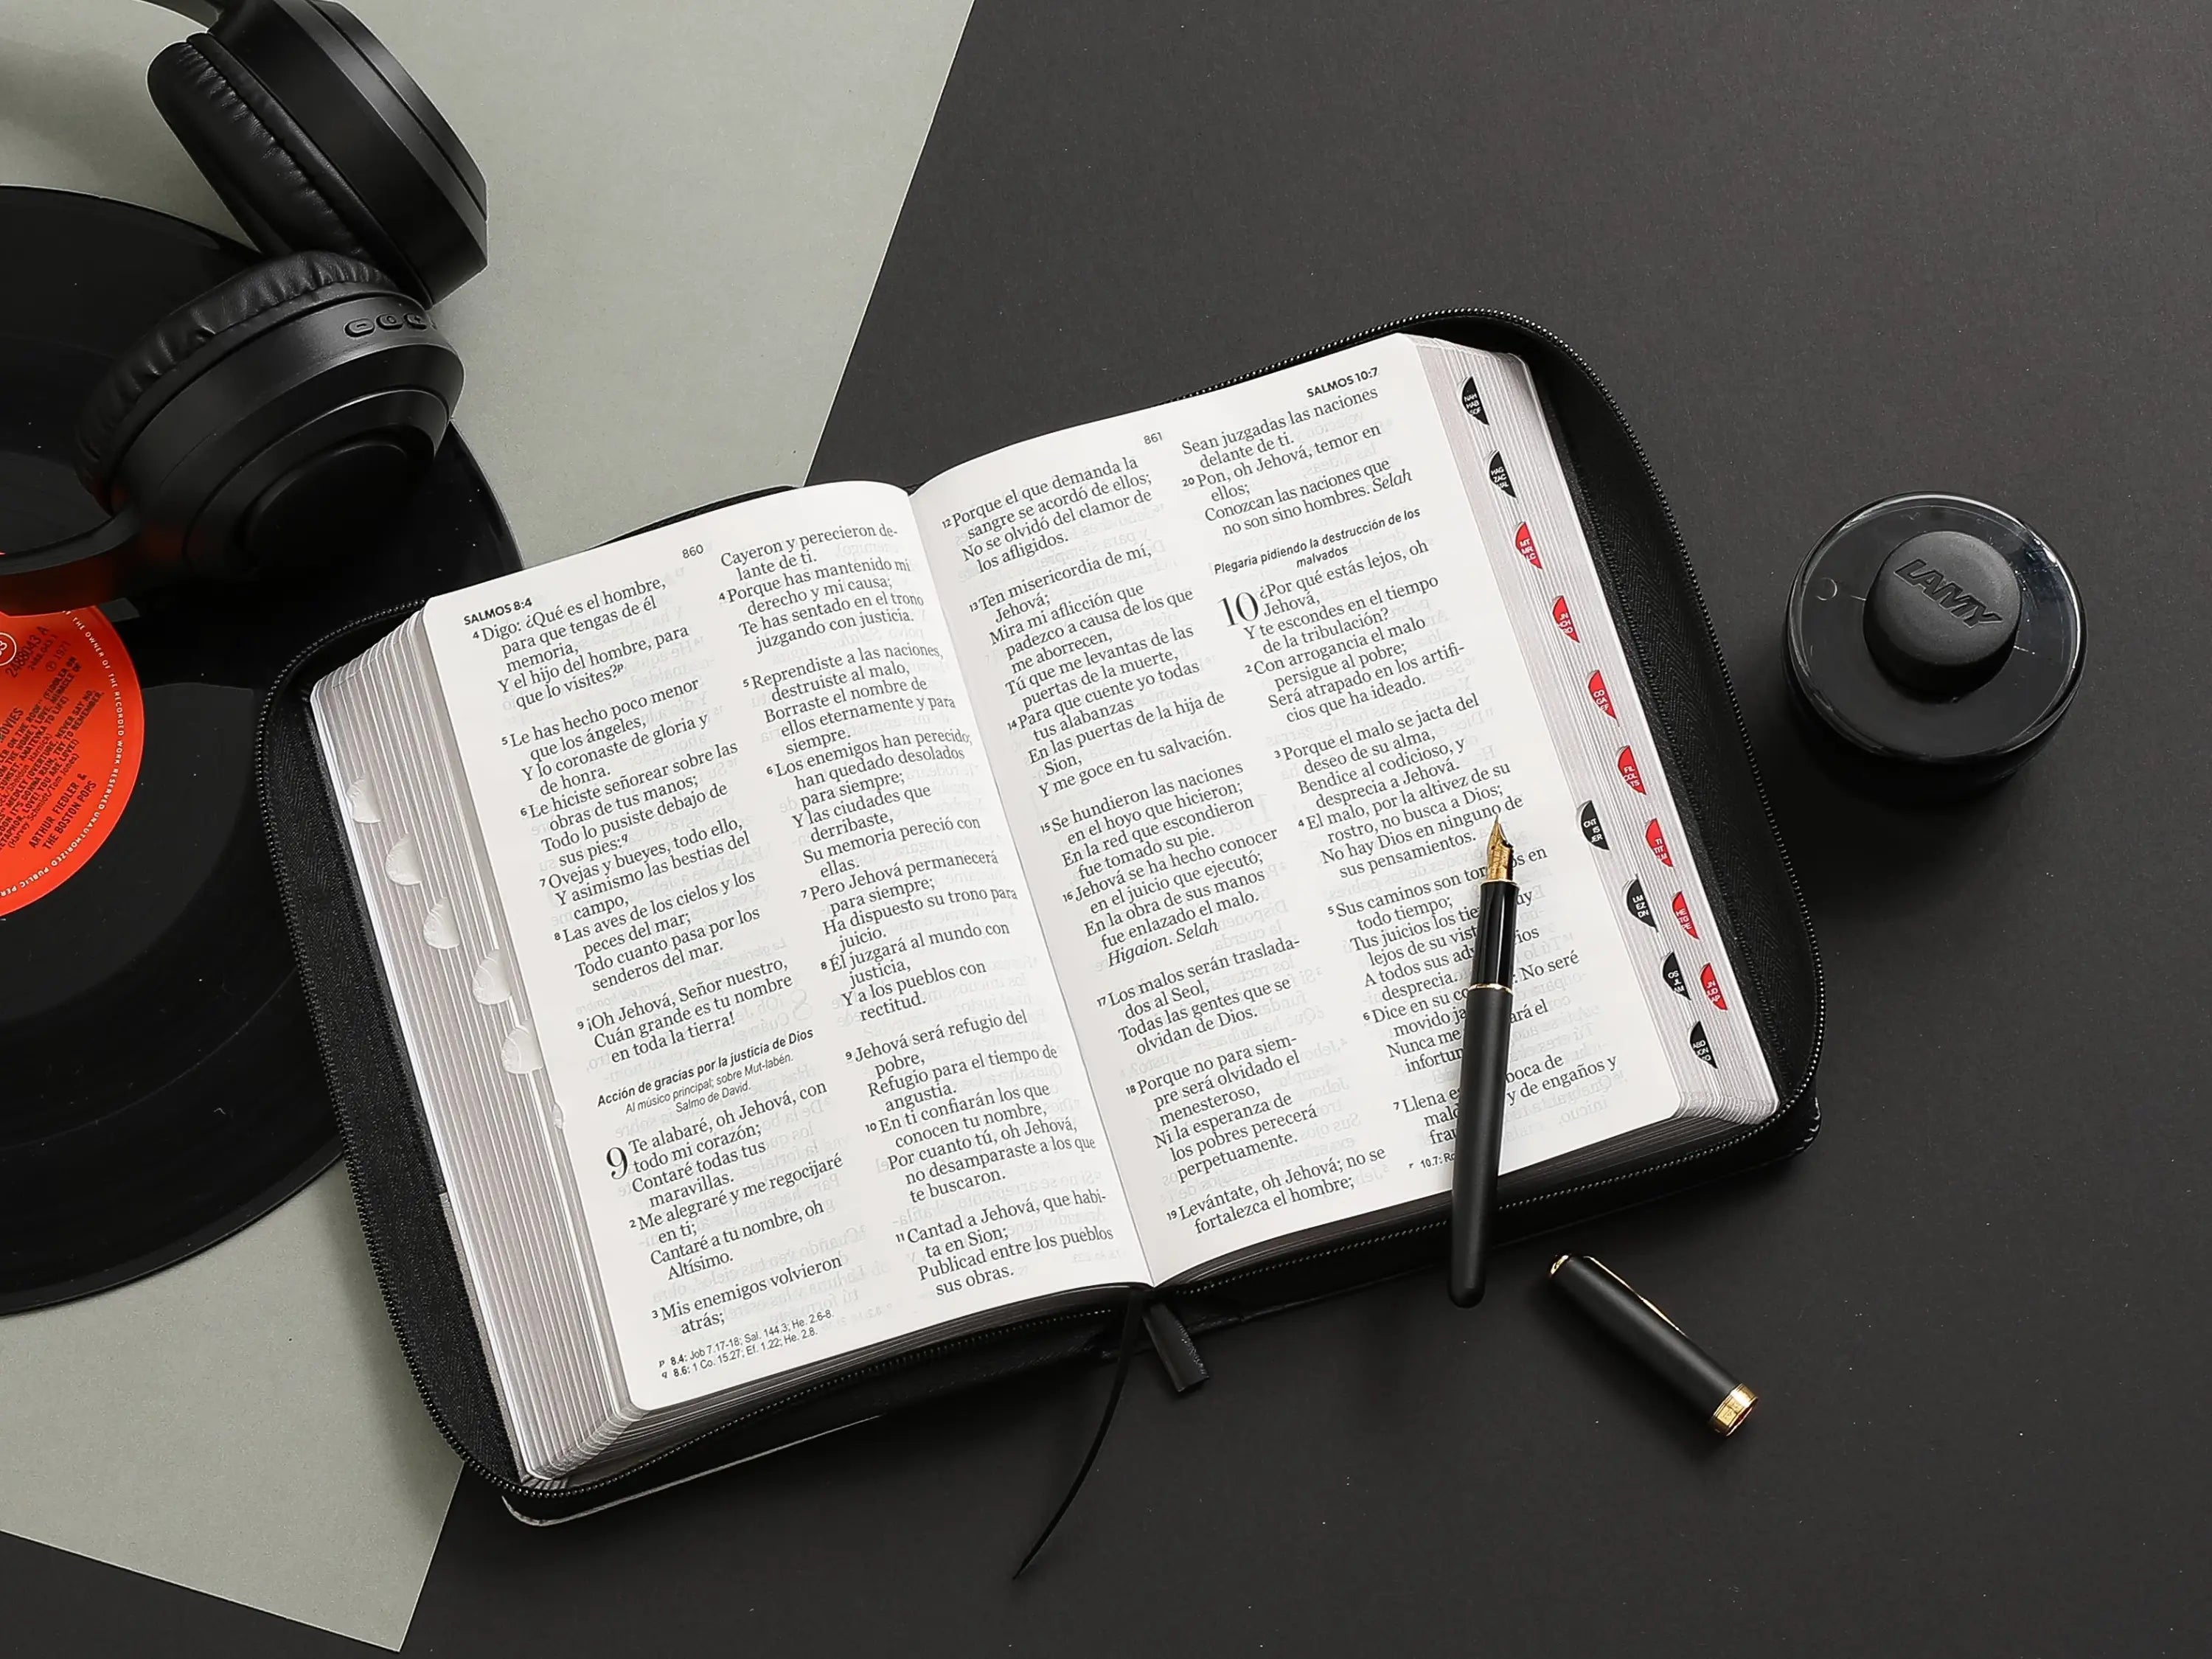 SALMOS 8:4
860
4 Digo: ¿Qué es el hombre,
para que tengas de él
memoria,
Y el hijo del hombre, para
que lo visites?p
5 Le has hecho poco menor
que los ángeles,
Y lo coronaste de gloria y
de honra.
6 Le hiciste señorear sobre las
obras de tus manos;
Todo lo pusiste debajo de
sus pies:q
7 Ovejas y bueyes, todo ello,
Y asimismo las bestias del
campo,
8 Las aves de los cielos y los
peces del mar;
Todo cuanto pasa por los
senderos del mar.
9 ¡Oh Jehová, Señor nuestro,
Cuán grande es tu nombre
en toda la tierra!
Acción de gracias por la justicia de Dios
Al músico principal; sobre Mut-labén.
Salmo de David.
9 Te alabaré, oh Jehová, con
todo mi corazón;
Contaré todas tus
maravillas.
2 Me alegraré y me regocijaré
en ti;
Cantaré a tu nombre, oh
Altísimo.
3 Mis enemigos volvieron
atrás;
p 8.4: Job 7.17-18; Sal. 144.3; He. 2.6-8.
q 8.6: 1 Co. 15.27; Ef. 1.22; He. 2.8.
Cayeron y perecieron de-
lante de ti.
4 Porque has mantenido mi
derecho y mi causa;
Te has sentado en el trono
juzgando con justicia.
5 Reprendiste a las naciones,
destruiste al malo,
Borraste el nombre de
ellos eternamente y para
siempre.
6 Los enemigos han perecido;
han quedado desolados
para siempre;
Y las ciudades que
derribaste,
Su memoria pereció con
ellas.
7 Pero Jehová permanecerá
para siempre;
Ha dispuesto su trono para
juicio.
8 Él juzgará al mundo con
justicia,
Y a los pueblos con
rectitud.
9 Jehová será refugio del
pobre,
Refugio para el tiempo de
angustia.
10 En ti confiarán los que
conocen tu nombre,
Por cuanto tú, oh Jehová,
no desamparaste a los que
te buscaron.
11 Cantad a Jehová, que habi-
ta en Sion;
Publicad entre los pueblos
sus obras.
861
SALMOS 10:7
12 Porque el que demanda la
sangre se acordó de ellos;
No se olvidó del clamor de
los afligidos.
13 Ten misericordia de mí,
Jehová;
Mira mi aflicción que
padezco a causa de los que
me aborrecen,
Tú que me levantas de las
puertas de la muerte,
14 Para que cuente yo todas
tus alabanzas
En las puertas de la hija de
Sion,
Y me goce en tu salvación.
15 Se hundieron las naciones
en el hoyo que hicieron;
En la red que escondieron
fue tomado su pie.
16 Jehová se ha hecho conocer
en el juicio que ejecutó;
En la obra de sus manos
fue enlazado el malo.
Higaion. Selah
17 Los malos serán traslada-
dos al Seol,
Todas las gentes que se
olvidan de Dios.
18 Porque no para siem-
pre será olvidado el
menesteroso,
Ni la esperanza de
los pobres perecerá
perpetuamente.
19 Levántate, oh Jehová; no se
fortalezca el hombre;
Sean juzgadas las naciones
delante de ti.
20 Pon, oh Jehová, temor en
ellos;
Conozcan las naciones que
no son sino hombres. Selah
Plegaria pidiendo la destrucción de los
malvados
10 ¿Por qué estás lejos, oh
Jehová,
Y te escondes en el tiempo
de la tribulación?
2 Con arrogancia el malo
persigue al pobre;
Será atrapado en los artifi-
cios que ha ideado.
3 Porque el malo se jacta del
deseo de su alma,
Bendice al codicioso, y
desprecia a Jehová.
4 El malo, por la altivez de su
rostro, no busca a Dios;
No hay Dios en ninguno de
sus pensamientos.
5 Sus caminos son en
todo tiempo;
Tus juicios los
lejos de su
A todos sus
desprecia.
6 Dice en su No seré
movido
Nunca me el
7 Llena boca de
y de engaños y
r 10.7:
LAMY
NAH
HAB
SOF
HAG
ZAC
MAL
MT
MR
LC
JN
HCH
RO
CO
GA
EF
FIL
COL
TS
CNT
IS
JER
TI
TIT
FLM
LM
EZ
DN
HE
STG
PE
OS
JL
AM
JN
JUD
AP
ABD
JON
MIQ
33
2488043 A
Ⓟ 1971
ARTHUR FIEDLER &
THE BOSTON POPS
THE OWNER OF THE RECORDED WORK RESERVED UNAUTHORIZED PUBLIC